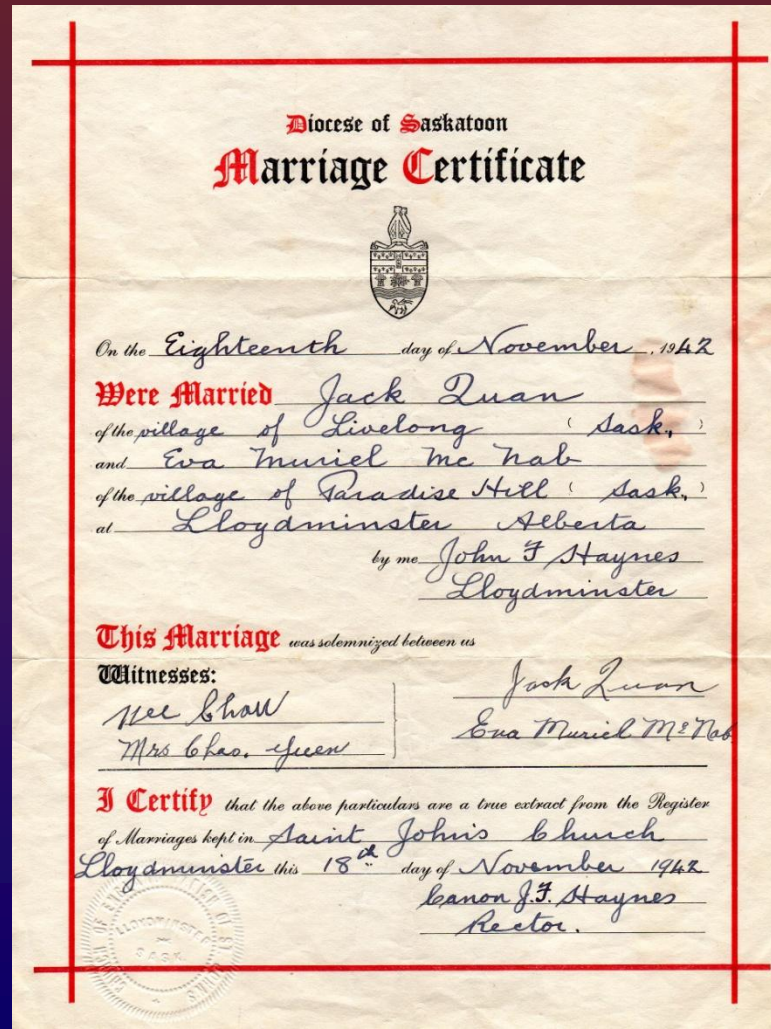 Diocese of Saskatoon
Marriage Certificate
On the Eighteenth day of November, 1942
Were Married Jack Quan
of the village of Livelong (Sask.,)
and Eva Muriel Mc Nab
of the village of Paradise Hill (Sask.,)
at Lloydminster Alberta
by me John F Haynes
Lloydminster
This Marriage was solemnized between us
Witnesses:
Jack Quan
Chow
Eva Muriel McNab
Mrs Chas. Yuen
I Certify that the above particulars are a true extract from the Register
of Marriages kept in Saint John's Church
Lloydminster this 18th day of November 1942
Canon J.F. Haynes
Rector.
LLOYDMINSTER
SASK.